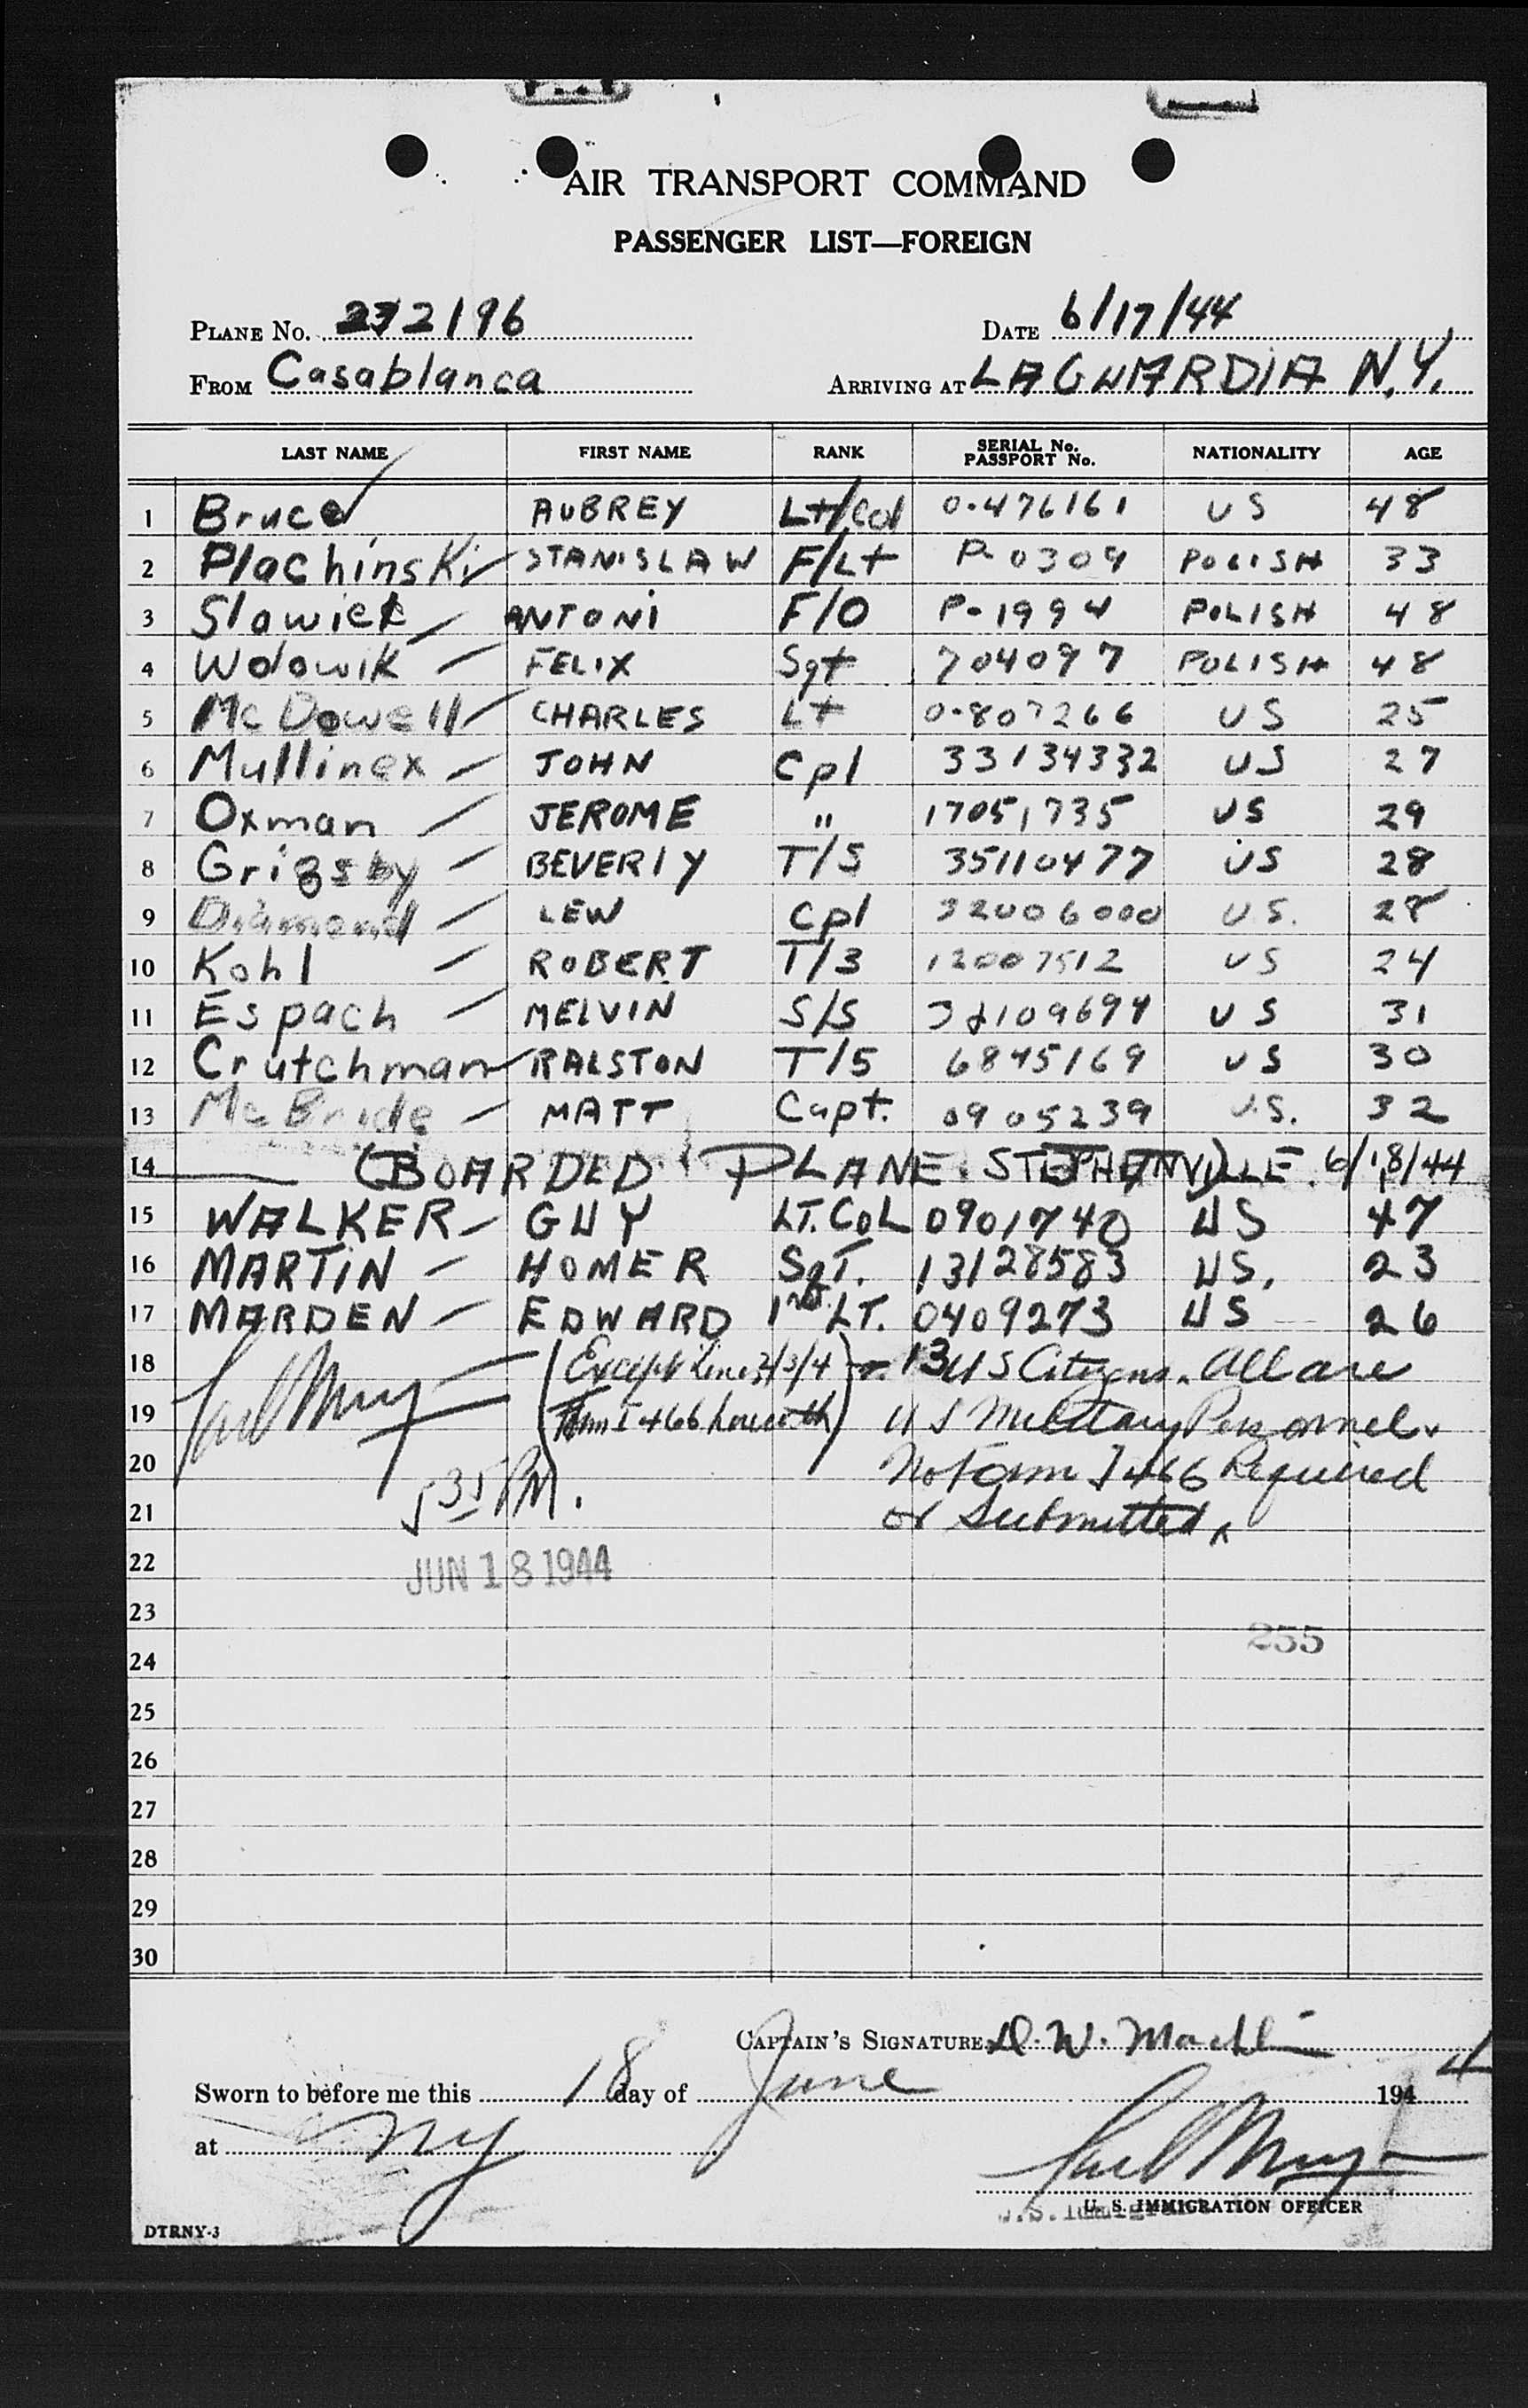 AIR TRANSPORT COMMAND
PASSENGER LIST—FOREIGN
PLANE No. 272196 DATE 6/17/44
FROM Casablanca ARRIVING AT LAGUARDIA N.Y.
LAST NAME FIRST NAME RANK SERIAL No. PASSPORT No. NATIONALITY AGE
1 Bruce AUBREY Lt/Col 0-476161 US 48
2 Plachinski STANISLAW F/Lt P-0309 POLISH 33
3 Slawick ANTONI F/O P-1994 POLISH 48
4 Wolowik FELIX Sgt 704097 POLISH 48
5 McDowell CHARLES Lt 0-807266 US 25
6 Mullinex JOHN Cpl 33134332 US 27
7 Oxman JEROME " 17051735 US 29
8 Grigsby BEVERLY T/5 35110477 US 28
9 Diamond LEW Cpl 32006000 U.S. 28
10 Kohl ROBERT T/3 12007512 US 24
11 Espach MELVIN S/S 32109694 US 31
12 Crutchman RALSTON T/5 6845169 US 30
13 McBride MATT Capt. 0905239 U.S. 32
14 (BOARDED PLANE STEPHENVILLE 6/18/44
15 WALKER GUY LT. COL 0901740 US 47
16 MARTIN HOMER SgT. 13128583 US. 23
17 MARDEN EDWARD 1st LT. 0409273 US 26
18 (Except Lines 2/3/4) 13 US Citizens. All are
19 Form I 466 herewith) US Military Personnel.
20 No Form I 466 Required
21 5 35 PM. or Submitted.
22 JUN 18 1944
23 255
24
25
26
27
28
29
30
CAPTAIN'S SIGNATURE D. W. 
Sworn to before me this 18 day of June 1944
at NY
U. S. IMMIGRATION OFFICER
DTRNY-3